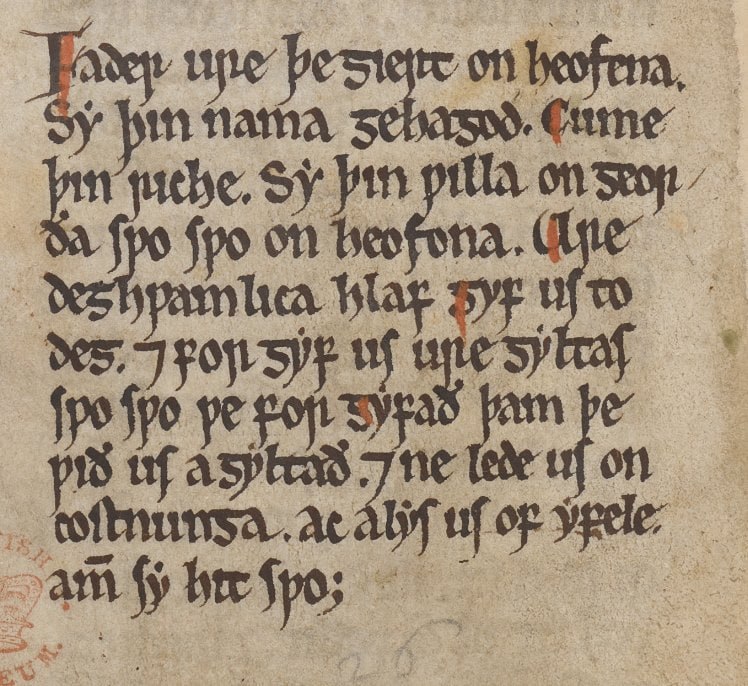 Fader ure þe giert on heofena.
Sẏ þin nama gehagod. Cume
þin riche. Sẏ þin ƿilla on geor
ða sƿo sƿo on heofona. Ure
deghƿamlica hlaf gyf us to
deg. ⁊ for gẏf us ure gẏltas
sƿo sƿo ƿe for gẏfað þam þe
ƿið us agẏltað. ⁊ ne lede us on
costnunga. ac alẏs us of ẏfele.
am̅ sẏ hit sƿo;
26